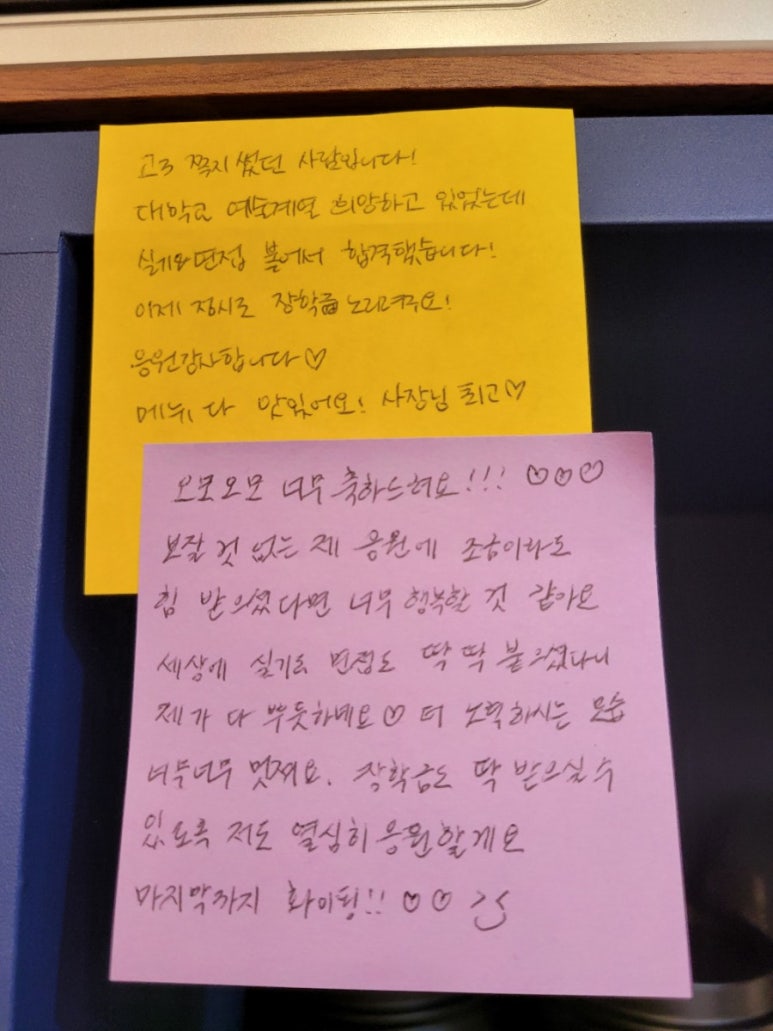 고3 쪽지 썼던 사람입니다!
대학교 예술계열 희망하고 있었는데
실기와 면접 볼에서 합격했습니다!
이제 정시로 장학금 노리려구요!
응원감사합니다♡
메뉴 다 맛있어요! 사장님 최고♡
오모오모 너무 축하드려요!!! ♡♡♡
보잘 것 없는 제 응원에 조금이라도
힘 받으셨다면 너무 행복할 것 같아요
세상에 실기도 면접도 딱 딱 붙으셨다니
제가 다 뿌듯하네요♡ 더 노력하시는 모습
너무너무 멋져요. 장학금도 딱 받으실 수
있도록 저도 열심히 응원할게요
마지막까지 화이팅!! ♡♡